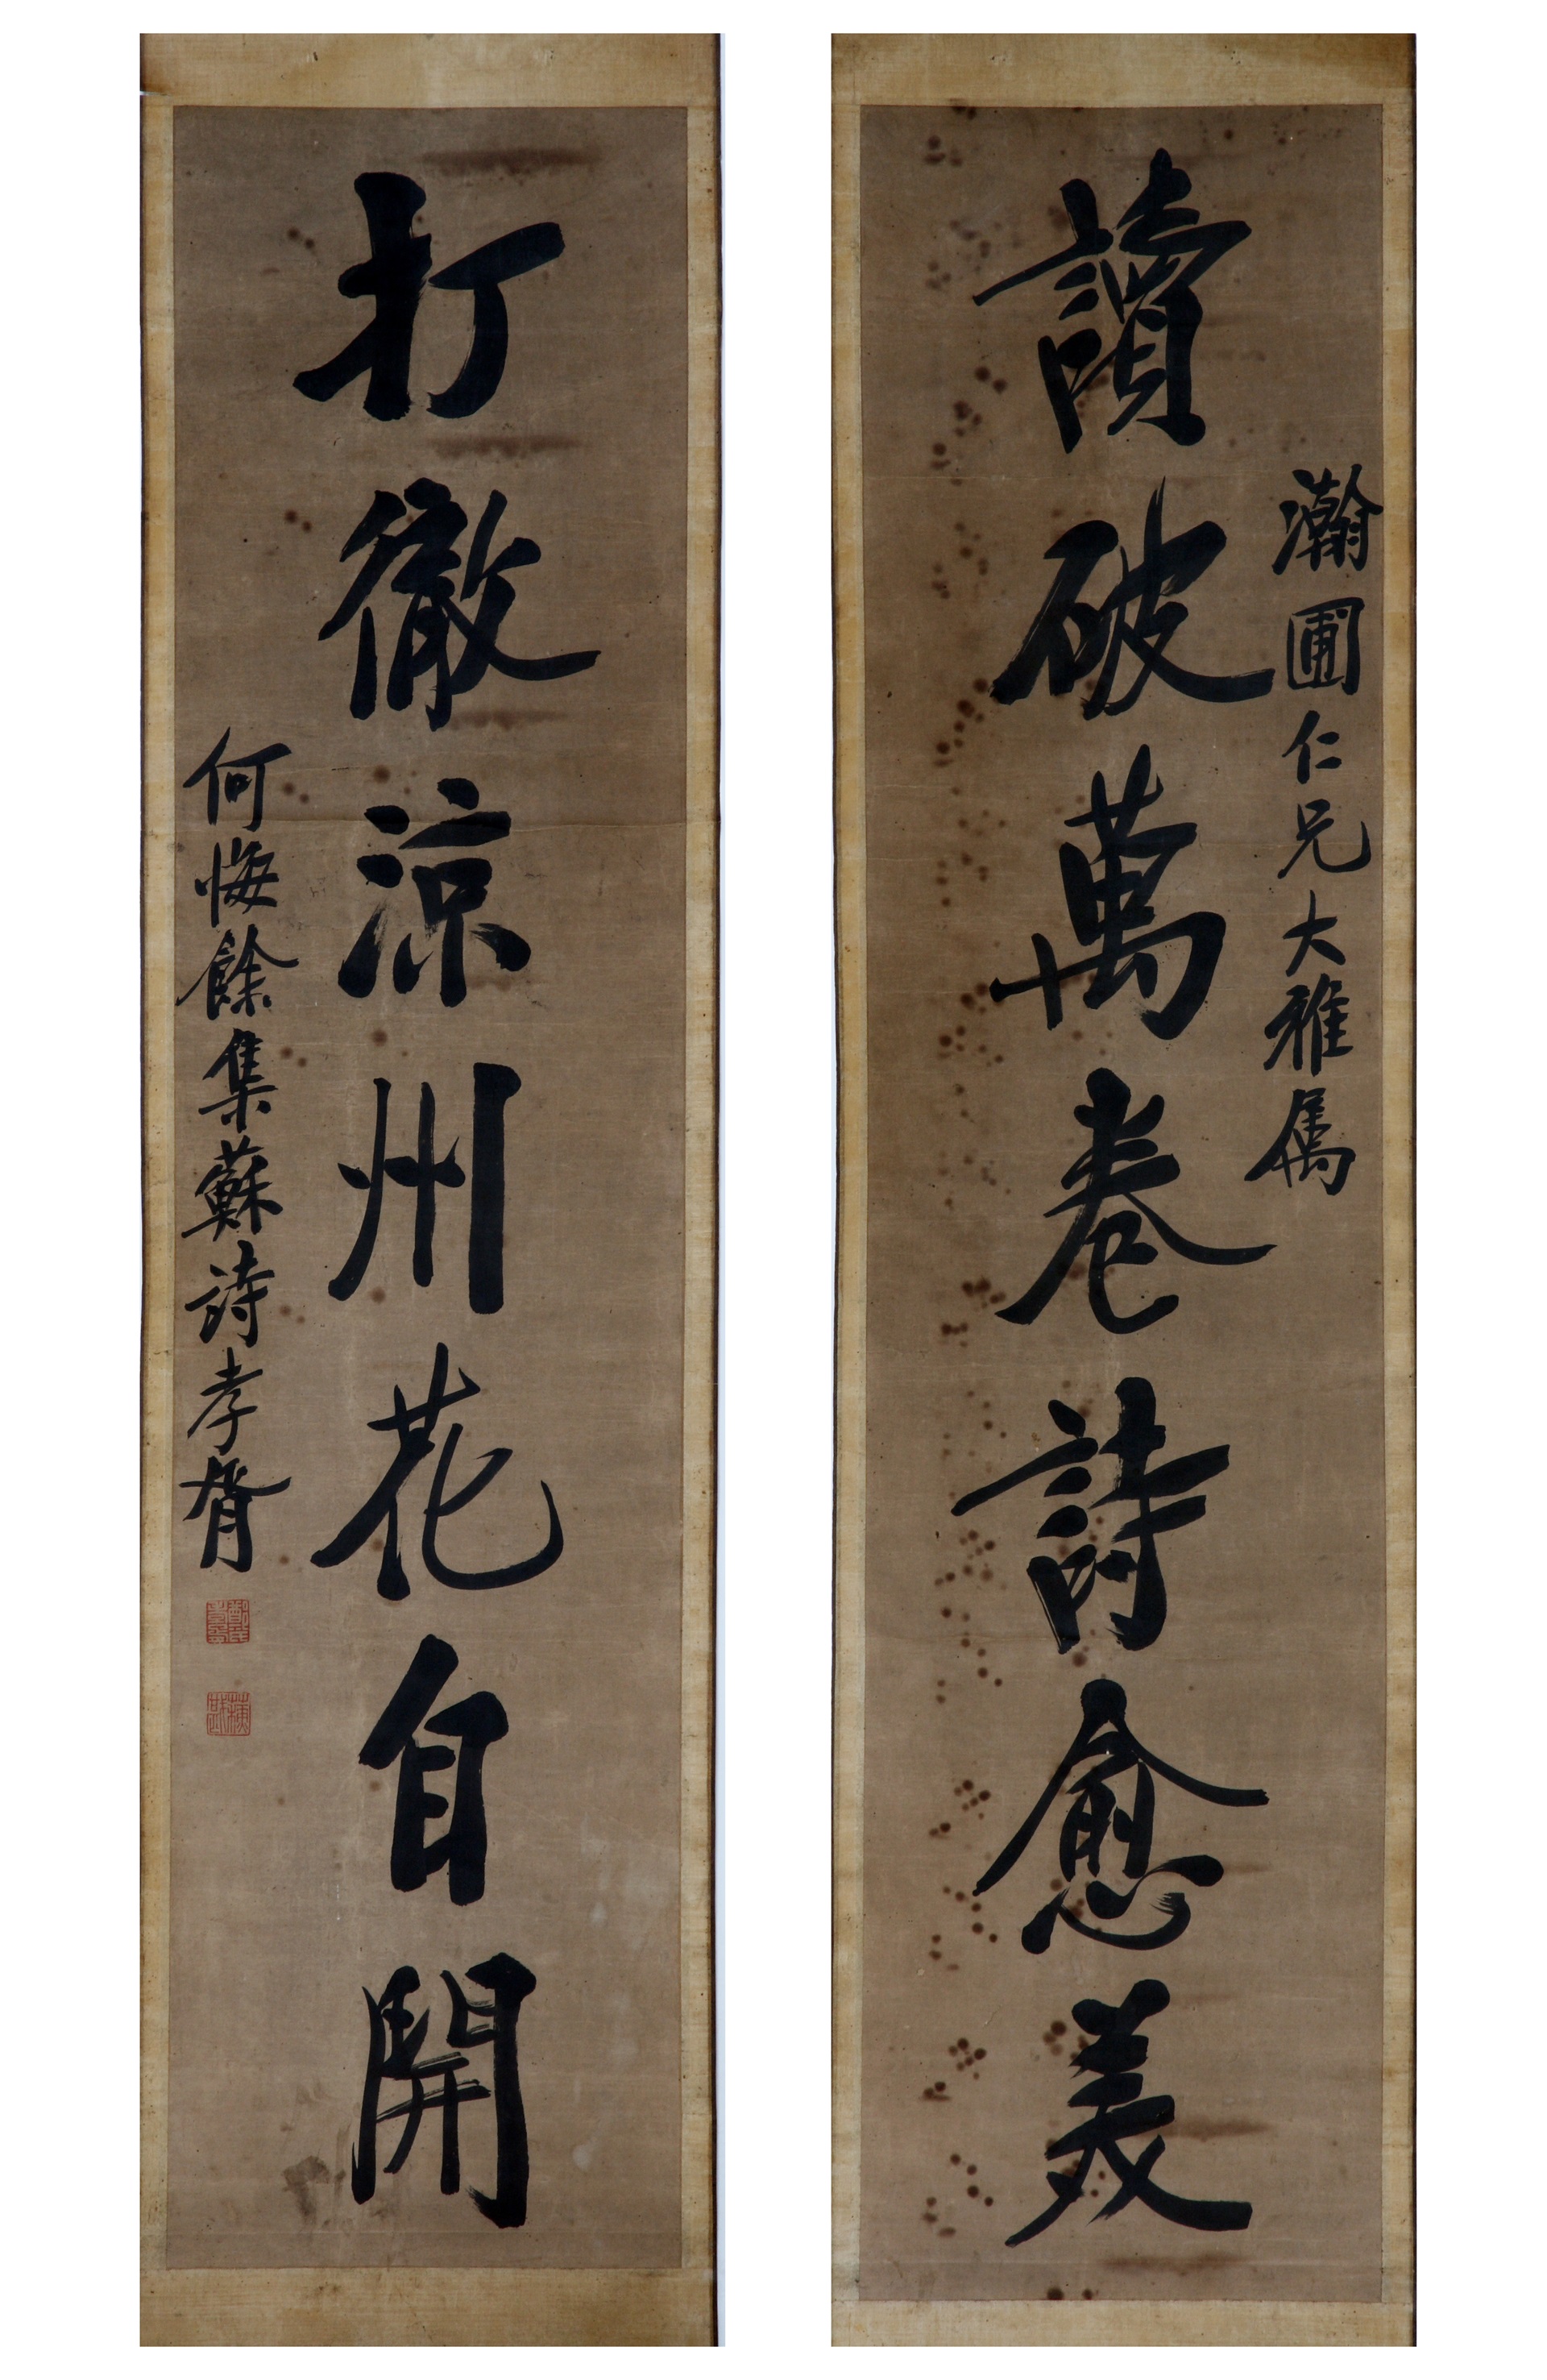 瀚圃仁兄大雅属
讀破萬卷詩愈美
打徹涼州花自開
何悔餘集蘇詩孝胥